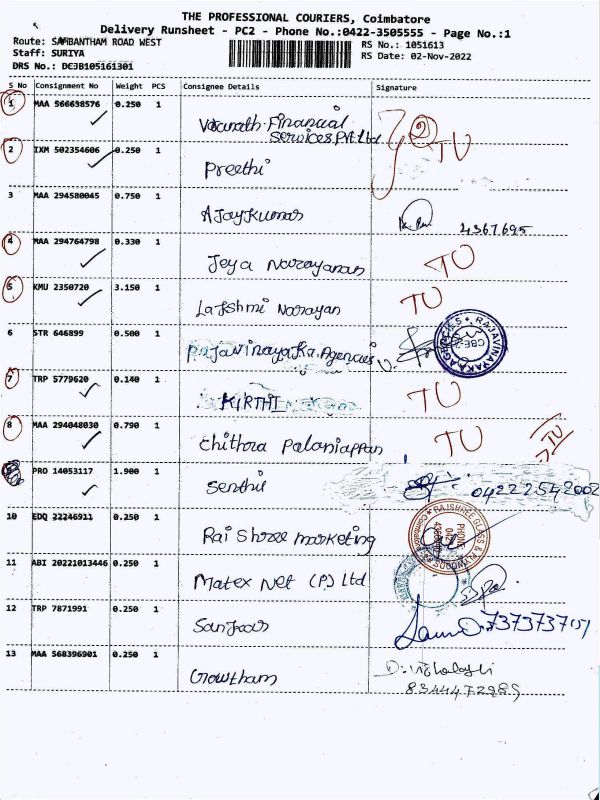 THE PROFESSIONAL COURIERS, Coimbatore
Delivery Runsheet - PC2 - Phone No.:0422-3505555 - Page No.:1
Route: SAMBANTHAM ROAD WEST
RS No.: 1051613
Staff: SURIYA
RS Date: 02-Nov-2022
DRS No.: DCJB105161301
S No Consignment No Weight PCS Consignee Details Signature
1 MAA 566638576 0.250 1
Financial
Services Pvt Ltd
2 IXM 502354606 0.250 1 Preethi TU
3 MAA 294580045 0.750 1 AJay Kumar 4367695
4 MAA 294764798 0.330 1 Jeya Narayanan TU
5 KMU 2350720 3.150 1 Lakshmi Narayan TU
6 STR 646899 0.500 1 Rajavinayaka Agencies RAJAVINAYAKA AGENCIES CBE
7 TRP 5779620 0.140 1 KIRTHI TU
8 MAA 294048030 0.790 1 Chithra Palaniappan TU TU
PRO 14053117 1.900 1 Senthil 04222542002
10 EDQ 22246911 0.250 1 Raj Shree marketing RAJSHREE GLASS & PLYWOODS PHONE Coimbatore
11 ABI 20221013446 0.250 1 Matex Net (P) Ltd
12 TRP 7871991 0.250 1 7373737151
13 MAA 568396901 0.250 1 Gowtham